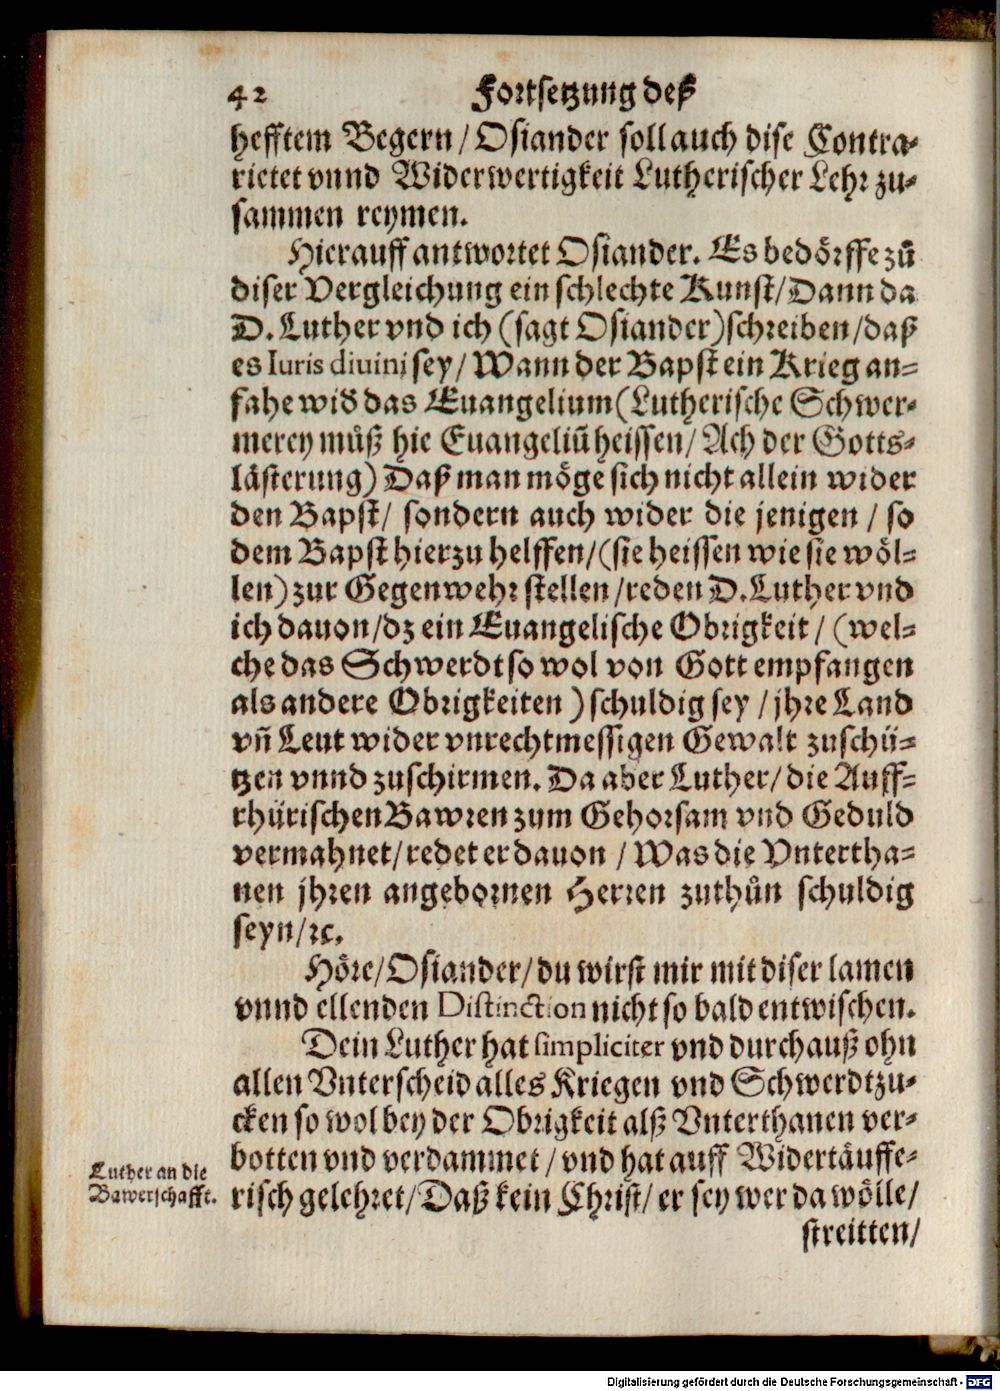 42 Fortsetzung deß
hefftem Begern / Osiander soll auch dise Contra-
rietet vnnd Widerwertigkeit Lutherischer Lehr zu-
sammen reymen.
Hierauff antwortet Osiander. Es bedörffe zů
diser Vergleichung ein schlechte Kunst / Dann da
D. Luther vnd ich (sagt Osiander) schreiben / daß
es Iuris diuini sey / Wann der Bapst ein Krieg an-
fahe wid das Euangelium (Lutherische Schwer-
merey můß hie Euangeliũ heissen / Ach der Gotts-
lästerung) Daß man möge sich nicht allein wider
den Bapst / sondern auch wider die jenigen / so
dem Bapst hierzu helffen / (sie heissen wie sie wöl-
len) zur Gegenwehr stellen / reden D. Luther vnd
ich dauon / dz ein Euangelische Obrigkeit / (wel-
che das Schwerdt so wol von Gott empfangen
als andere Obrigkeiten) schuldig sey / jhre Land
vñ Leut wider vnrechtmessigen Gewalt zuschü-
tzen vnnd zuschirmen. Da aber Luther / die Auff-
rhürischen Bawren zum Gehorsam vnd Geduld
vermahnet / redet er dauon / Was die Vntertha-
nen jhren angebornen Herren zuthůn schuldig
seyn / ꝛc.
Höre / Osiander / du wirst mir mit diser lamen
vnnd ellenden Distinction nicht so bald entwischen.
Dein Luther hat simpliciter vnd durchauß ohn
allen Vnterscheid alles Kriegen vnd Schwerdtzu-
cken so wol bey der Obrigkeit alß Vnterthanen ver-
botten vnd verdammet / vnd hat auff Widertäuffe-
risch gelehret / Daß kein Christ / er sey wer da wölle /
streitten /
Luther an die
Bawerschafft.
Digitalisierung gefördert durch die Deutsche Forschungsgemeinschaft - DFG